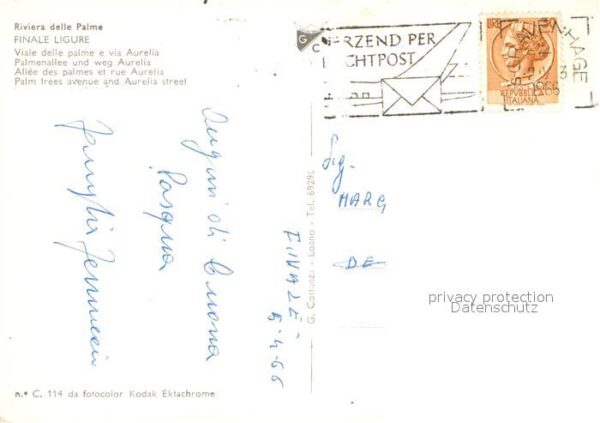 Riviera delle Palme
FINALE LIGURE
Viale delle palme e via Aurelia
Palmenallee und weg Aurelia
Allée des palmes et rue Aurelia
Palm trees avenue and Aurelia street
Auguri di buona
Pasqua
Famiglia
FINALE
5-4-66
n.º C. 114 da fotocolor Kodak Ektachrome
G. Cortanzi - Loano - Tel. 69290
G C
RZEND PER
CHTPOST
1966
REPVBBLICA
ITALIANA
Sig.
MARG
DE
privacy protection
Datenschutz